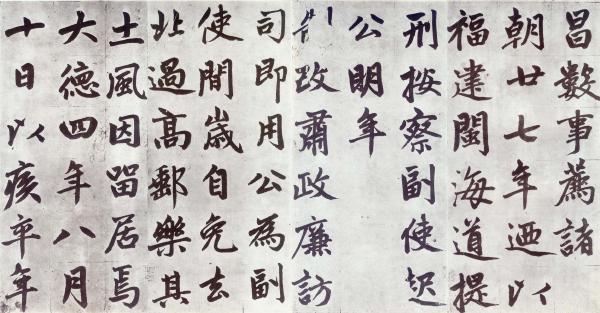 昌數事薦諸
朝廿七年迺以
福建閩海道提
刑按察副使起
公明年
改肅政廉訪
司即用公為副
使間歲自免去
北過高郵樂其
土風因留居焉
大德四年八月
十日以疾卒年